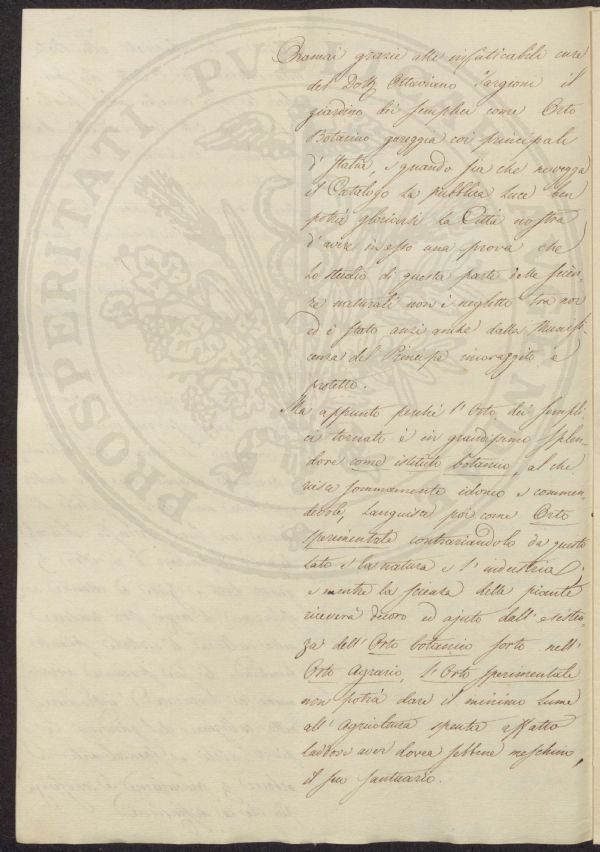 Oramai grazie alle infaticabili cure
del Dott. Ottaviano Targioni il
giardino dei semplici come Orto
Botanico gareggia coi principali
d'Italia, e quando fia che ne vegga
il Catalogo la pubblica luce ben
potrà gloriarsi la Città nostra
d'avere in esso una prova che
lo studio di questa parte delle scien-
ze naturali non è negletto tra noi
ed è stato anzi anche dalla Munifi-
cenza del Principe incoraggito e
protetto.
Ma appunto perchè l'Orto dei Sempli-
ci tornato è in grandissimo splen-
dore come istituto botanico, al che
riesce sommamente idoneo e commen-
devole, languisce poi come Orto
sperimentale contrariandolo da questo
lato e la natura e l'industria;
e mentre la scienza delle piante
riceverà decoro ed ajuto dall'esisten-
za dell'Orto botanico sorto nell'
Orto Agrario, l'Orto sperimentale
non potrà dare il minimo lume
all'Agricoltura spenta affatto
laddove aver dovea sebbene meschino,
il suo santuario.
PROSPERITATI PVBLICAE